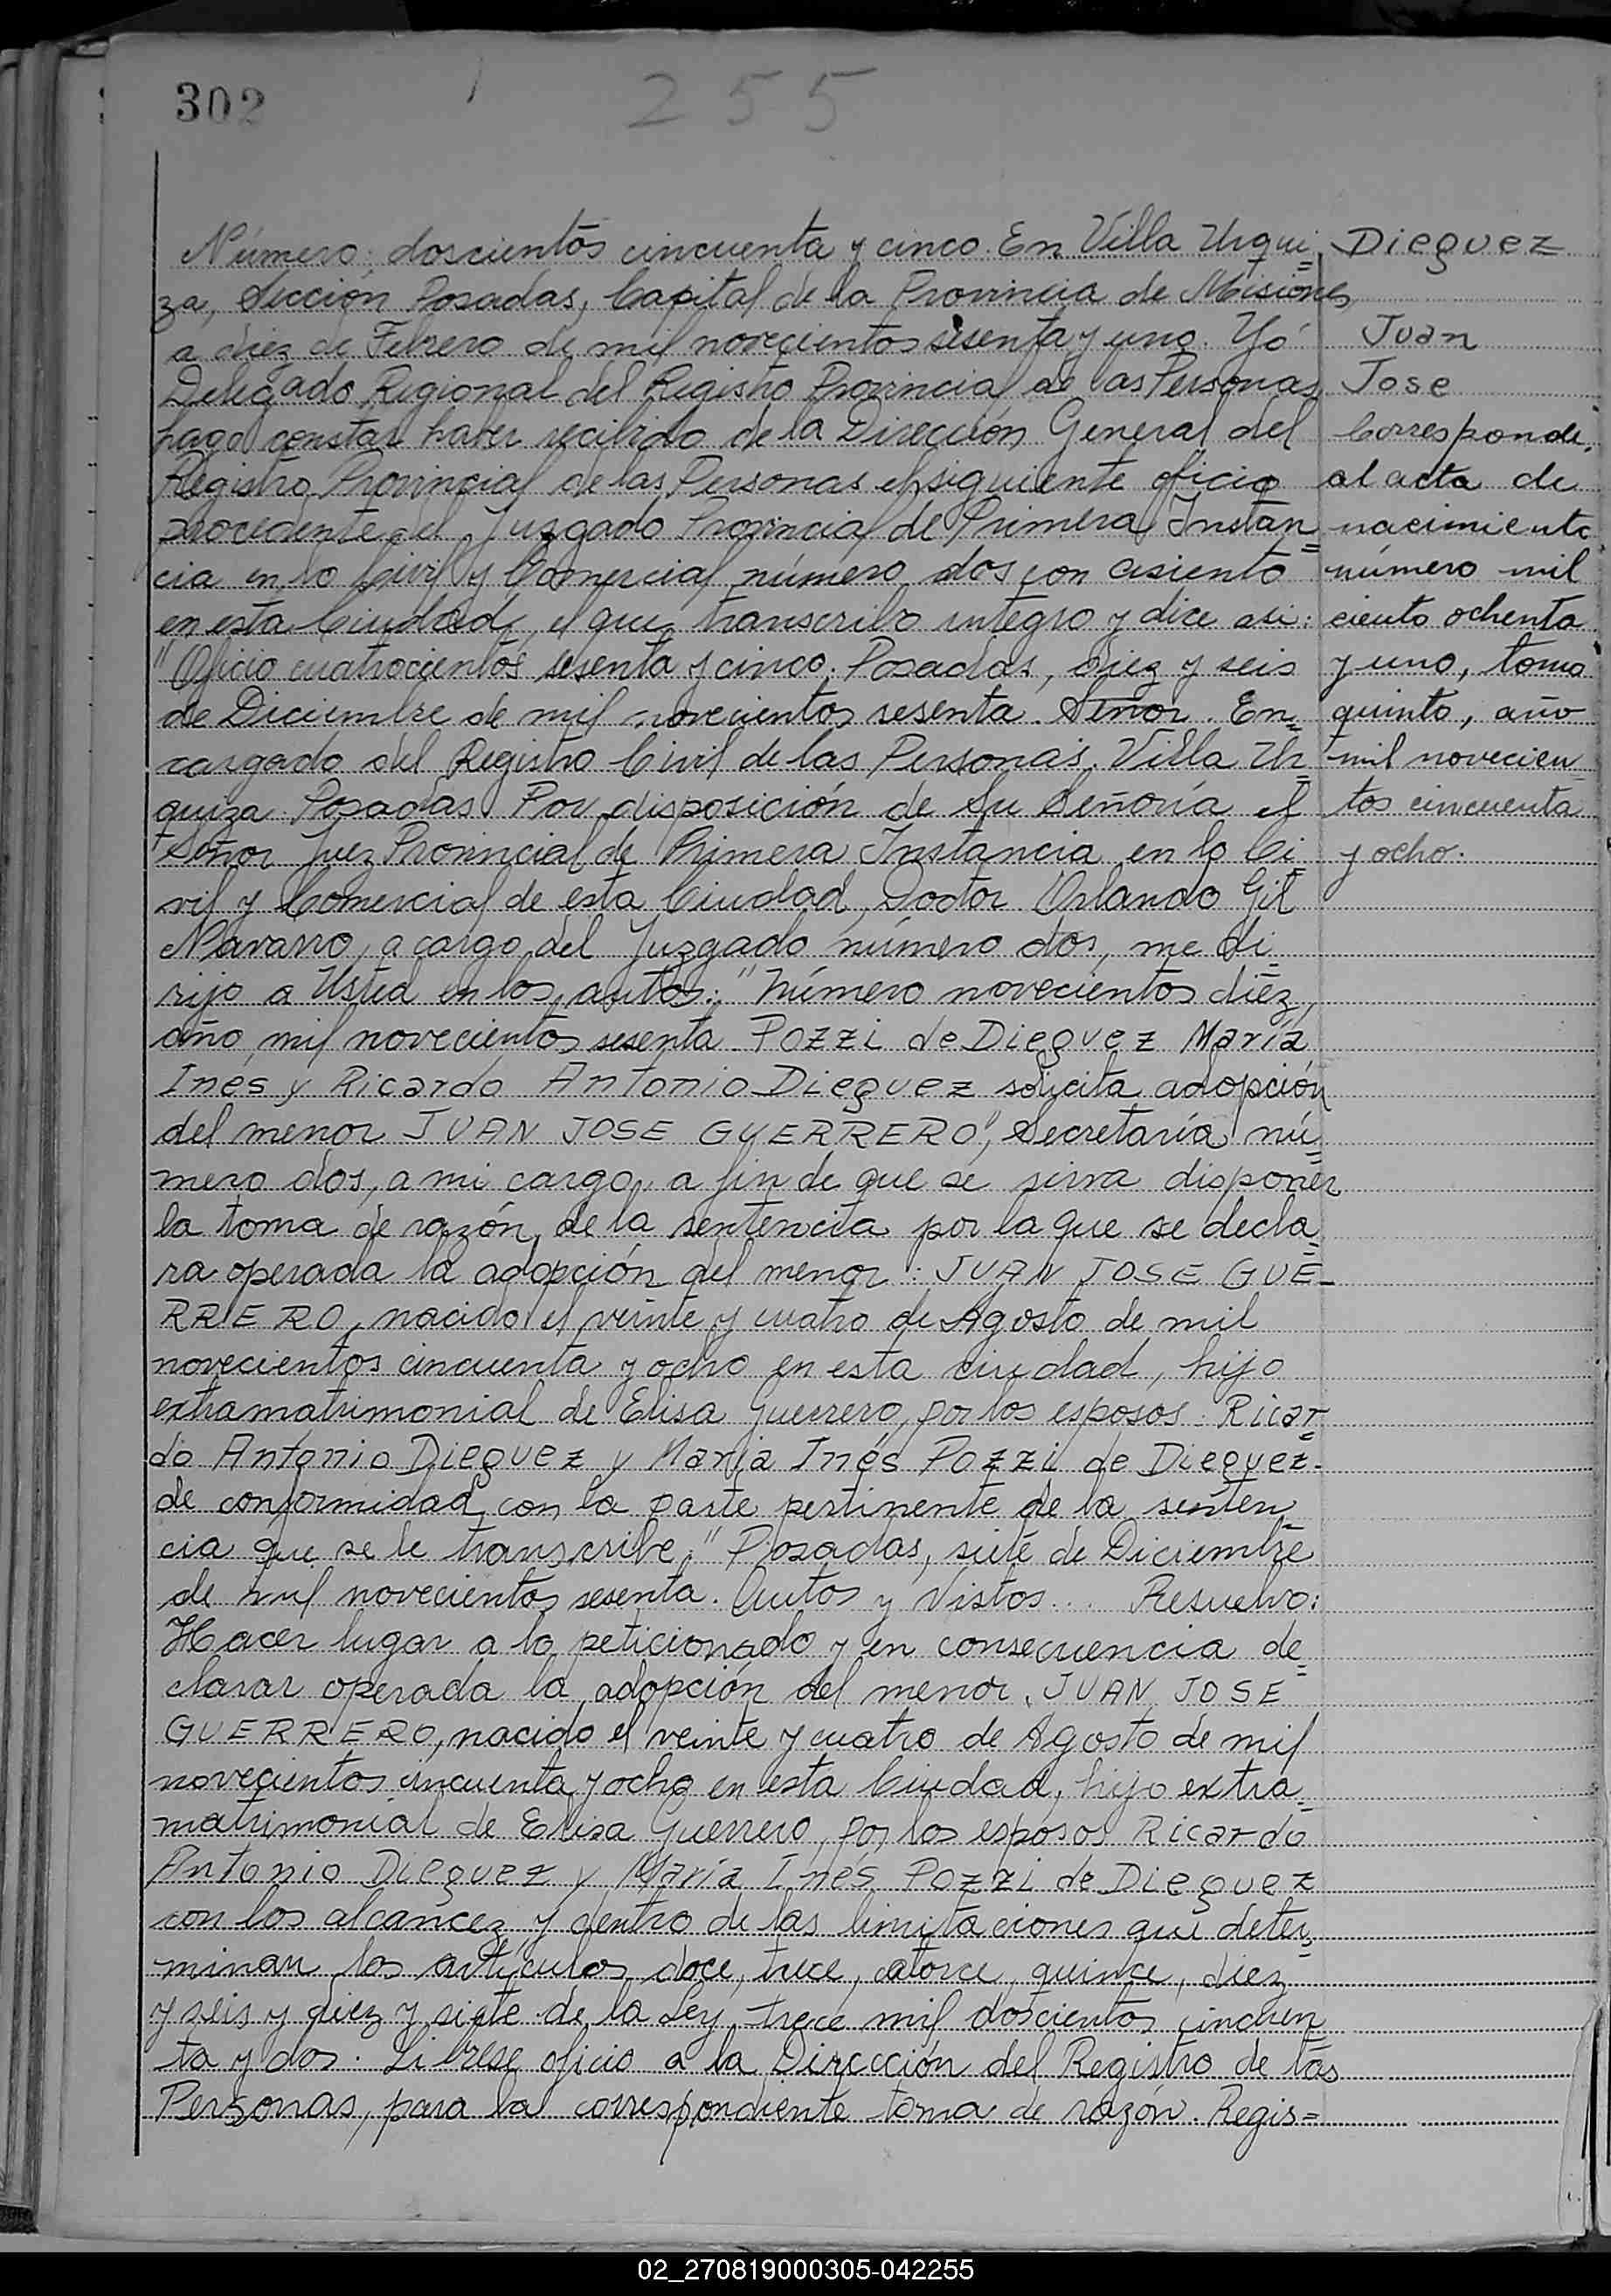 302
255
Número: doscientos cincuenta y cinco. En Villa Urqui=
za, Sección Posadas, Capital de la Provincia de Misiones,
a diez de Febrero de mil novecientos sesenta y uno. Yó
Delegado Regional del Registro Provincial de las Personas,
hago constar haber recibido de la Dirección General del
Registro Provincial de las Personas el siguiente oficio
procedente del Juzgado Provincial de Primera Instan=
cia en lo Civil y Comercial número dos con asiento
en esta Ciudad, el que transcribo integro y dice asi:
"Oficio cuatrocientos sesenta y cinco. Posadas, diez y seis
de Diciembre de mil novecientos sesenta. Señor. En=
cargado del Registro Civil de las Personas. Villa Ur=
quiza Posadas. Por disposición de Su Señoría el
Señor Juez Provincial de Primera Instancia en lo Ci=
vil y Comercial de esta Ciudad, Doctor Orlando Gil
Navarro, a cargo del Juzgado número dos, me di=
rijo a Usted en los autos: "Número novecientos diez,
año mil novecientos sesenta. Pozzi de Dieguez María
Inés y Ricardo Antonio Dieguez solicita adopción
del menor JUAN JOSE GUERRERO", Secretaría nú=
mero dos, a mi cargo, a fin de que se sirva disponer
la toma de razón de la sentencita por la que se decla=
ra operada la adopción del menor: JUAN JOSE GUE-
RRERO, nacido el veinte y cuatro de Agosto de mil
novecientos cincuenta y ocho en esta ciudad, hijo
extramatrimonial de Elisa Guerrero, por los esposos: Ricar=
do Antonio Dieguez y Maria Inés Pozzi de Dieguez-
de conformidad con la parte pertinente de la senten=
cia que se le transcribe: "Posadas, siete de Diciembre
de mil novecientos sesenta. Autos y Vistos... Resuelvo:
Hacer lugar a lo peticionado y en consecuencia de=
clarar operada la adopción del menor, JUAN JOSE
GUERRERO, nacido el veinte y cuatro de Agosto de mil
novecientos cincuenta y ocho en esta Ciudad, hijo extra=
matrimonial de Elisa Guerrero, por los esposos Ricardo
Antonio Dieguez y María Inés Pozzi de Dieguez
con los alcancez y dentro de las limitaciones que deter=
minan los artículos doce, trece, catorce, quince, diez
y seis y diez y siete de la Ley trece mil doscientos cincuen=
ta y dos. Librese oficio a la Dirección del Registro de las
Personas, para la correspondiente toma de razón. Regis=
Dieguez
Juan
Jose
Corresponde
al acta de
nacimiento
número mil
ciento ochenta
y uno, tomo
quinto, año
mil novecien=
tos cincuenta
y ocho.
02_270819000305-042255